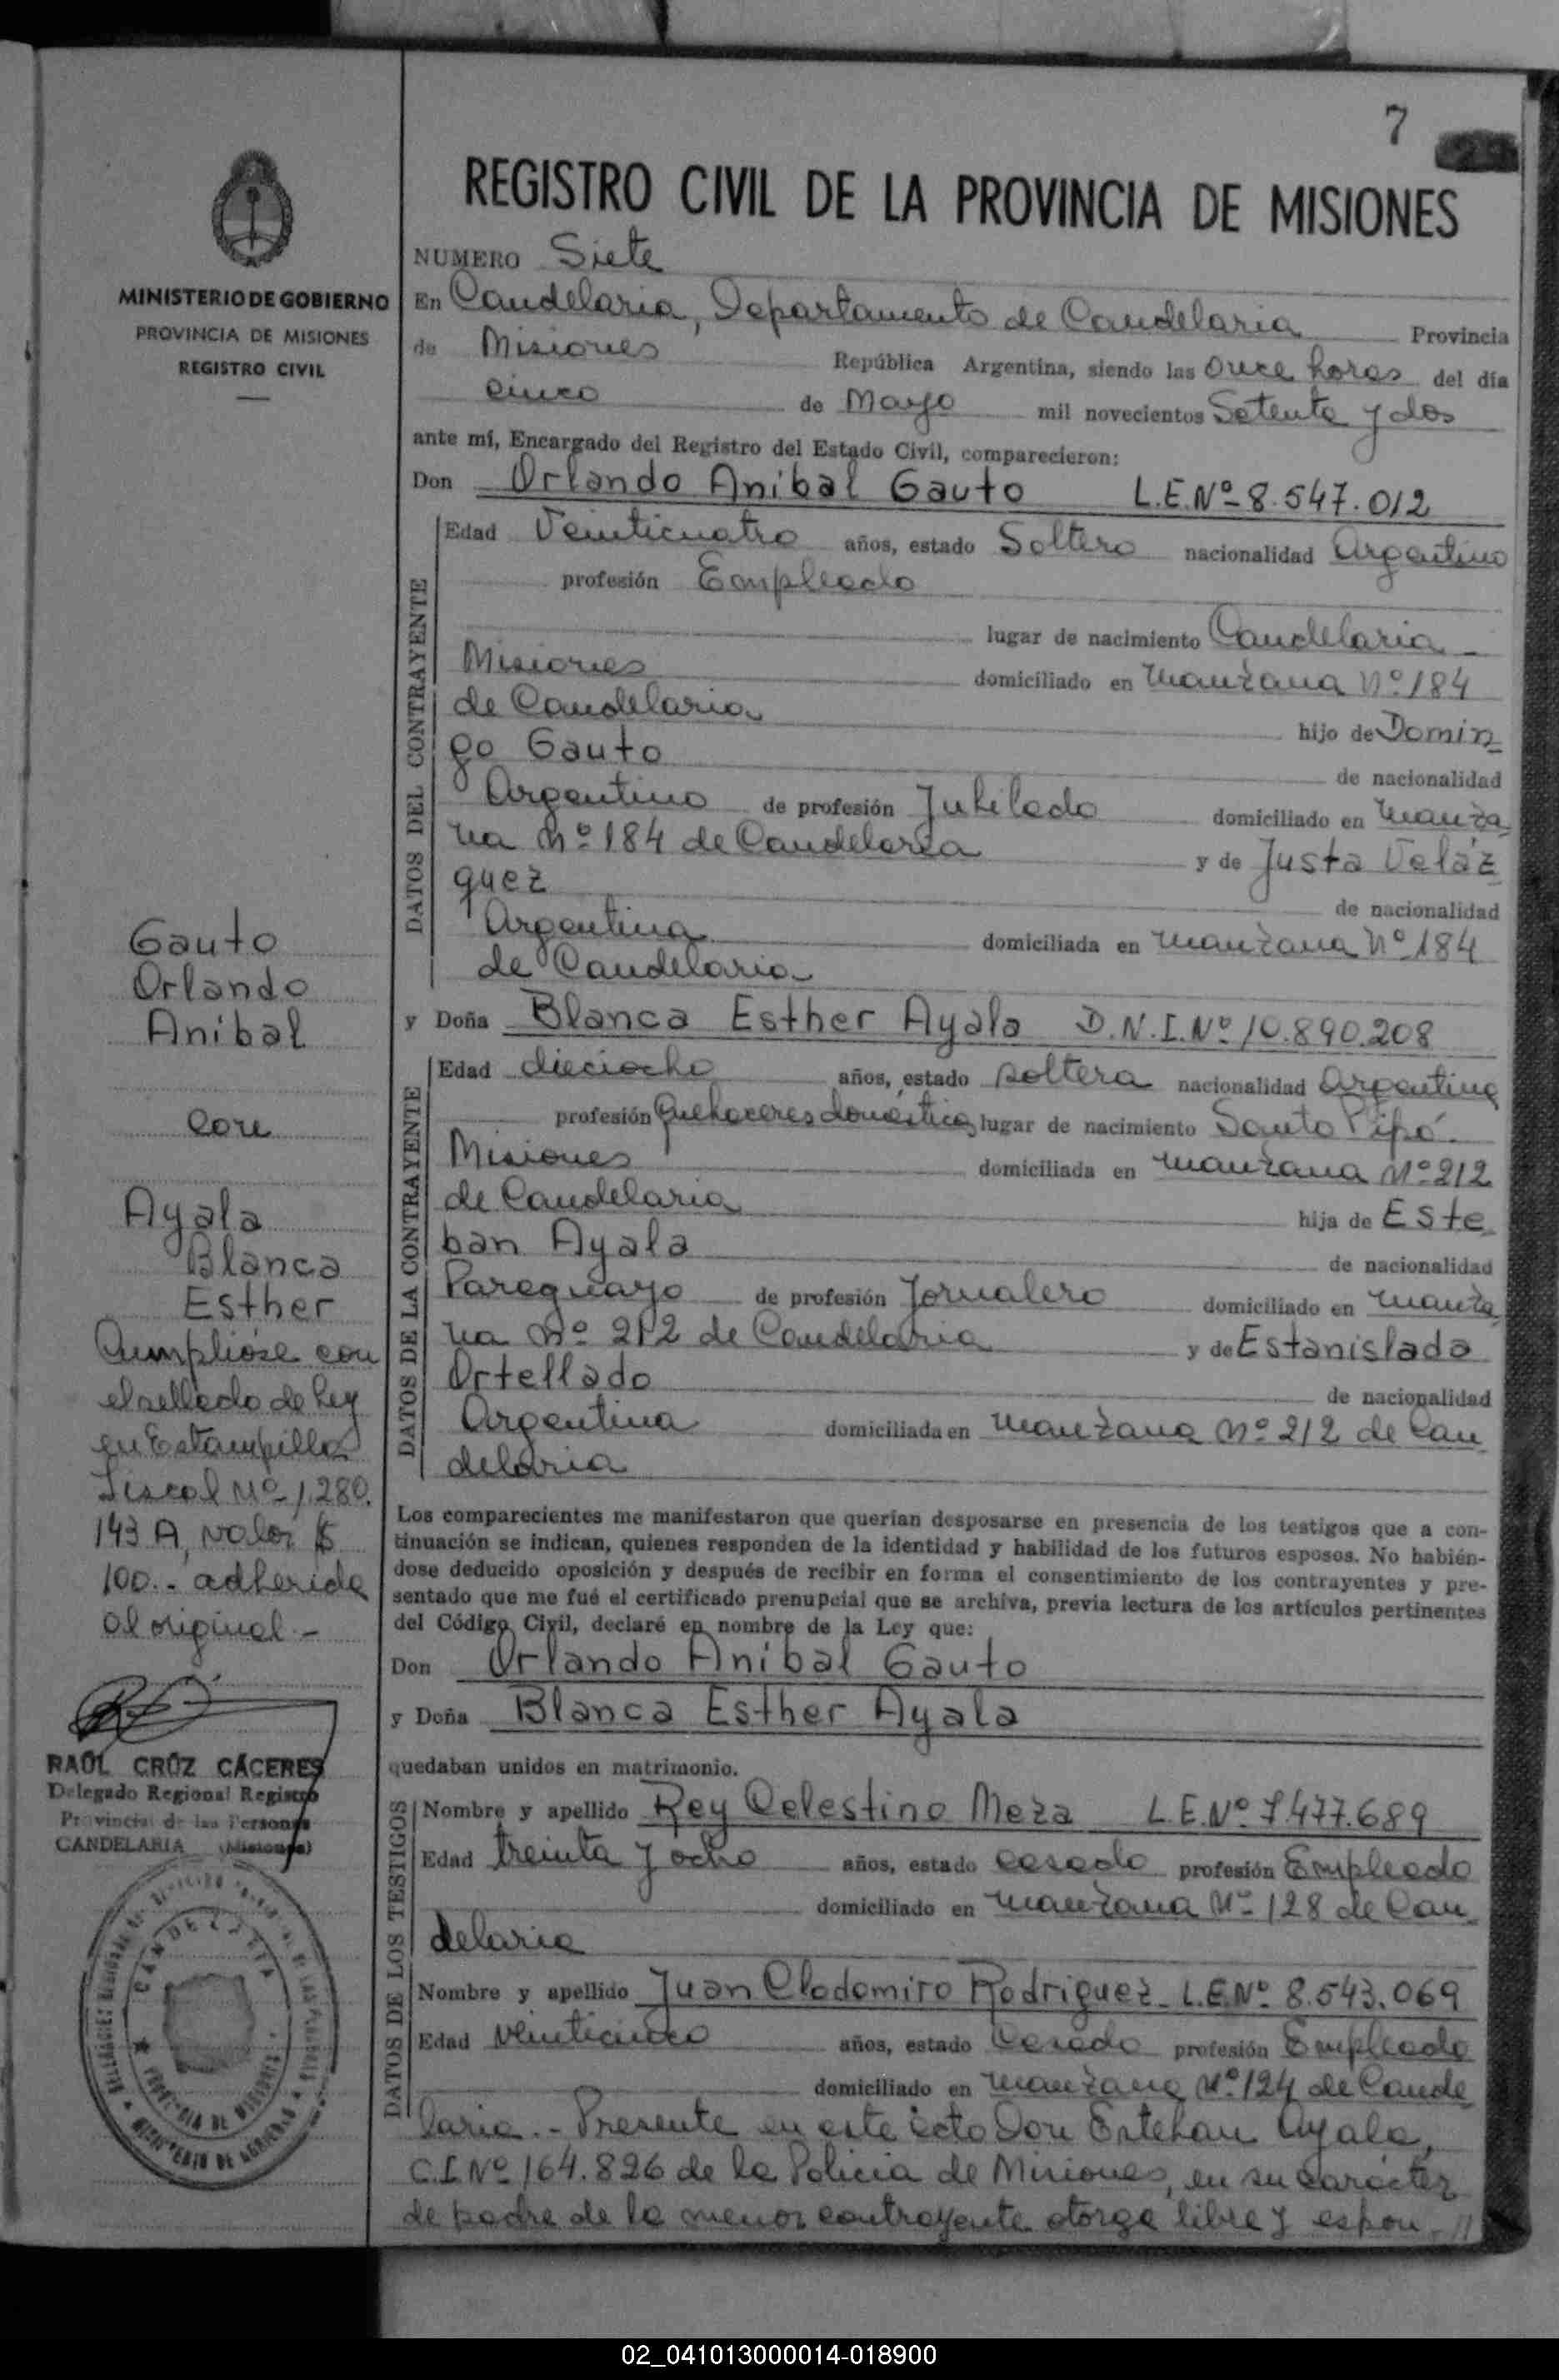 7
REGISTRO CIVIL DE LA PROVINCIA DE MISIONES
MINISTERIO DE GOBIERNO
PROVINCIA DE MISIONES
REGISTRO CIVIL
NUMERO Siete
En Candelaria, Departamento de Candelaria Provincia
de Misiones República Argentina, siendo las Once horas del día
cinco de Mayo mil novecientos Setenta y dos
ante mí, Encargado del Registro del Estado Civil, comparecieron:
Don Orlando Anibal Gauto L.E.Nº 8.547.012
DATOS DEL CONTRAYENTE
Edad Veinticuatro años, estado Soltero nacionalidad Argentino
profesión Empleado
lugar de nacimiento Candelaria
Misiones domiciliado en manzana Nº 184
de Candelaria hijo de Domin
go Gauto de nacionalidad
Argentino de profesión Jubilado domiciliado en manza
na Nº 184 de Candelaria y de Justa Veláz
quez de nacionalidad
Argentina domiciliada en manzana Nº 184
de Candelaria
y Doña Blanca Esther Ayala D.N.I.Nº 10.890.208
DATOS DE LA CONTRAYENTE
Edad dieciocho años, estado soltera nacionalidad Argentina
profesión Quehaceres domésticos lugar de nacimiento Santo Pipó.
Misiones domiciliada en manzana Nº 212
de Candelaria hija de Este
ban Ayala de nacionalidad
Paraguayo de profesión Jornalero domiciliado en manza
na Nº 212 de Candelaria y de Estanislada
Ortellado de nacionalidad
Argentina domiciliada en manzana Nº 212 de Can
delaria
Los comparecientes me manifestaron que querían desposarse en presencia de los testigos que a con-
tinuación se indican, quienes responden de la identidad y habilidad de los futuros esposos. No habién-
dose deducido oposición y después de recibir en forma el consentimiento de los contrayentes y pre-
sentado que me fué el certificado prenupcial que se archiva, previa lectura de los artículos pertinentes
del Código Civil, declaré en nombre de la Ley que:
Don Orlando Anibal Gauto
y Doña Blanca Esther Ayala
quedaban unidos en matrimonio.
DATOS DE LOS TESTIGOS
Nombre y apellido Rey Celestino Meza L.E.Nº 7.477.689
Edad treinta y ocho años, estado casado profesión Empleado
domiciliado en manzana Nº 128 de Can
delaria
Nombre y apellido Juan Clodomiro Rodriguez L.E.Nº 8.543.069
Edad veinticinco años, estado Casado profesión Empleado
domiciliado en manzana Nº 124 de Cande
laria.- Presente en este acto Don Esteban Ayala,
C.I.Nº 164.826 de la Policia de Misiones, en su carácter
de padre de la menor contrayente otorga libre y espon //
Gauto
Orlando
Anibal
con
Ayala
Blanca
Esther
Cumpliose con
el sellado de ley
en Estampilla
Fiscal Nº 1.280.
143 A, valor $
100.- adherida
al original.-
RAÚL CRÚZ CÁCERES
Delegado Regional Registro
Provincial de las Personas
CANDELARIA (Misiones)
CANDELARIA
PROVINCIA DE MISIONES
02_041013000014-018900